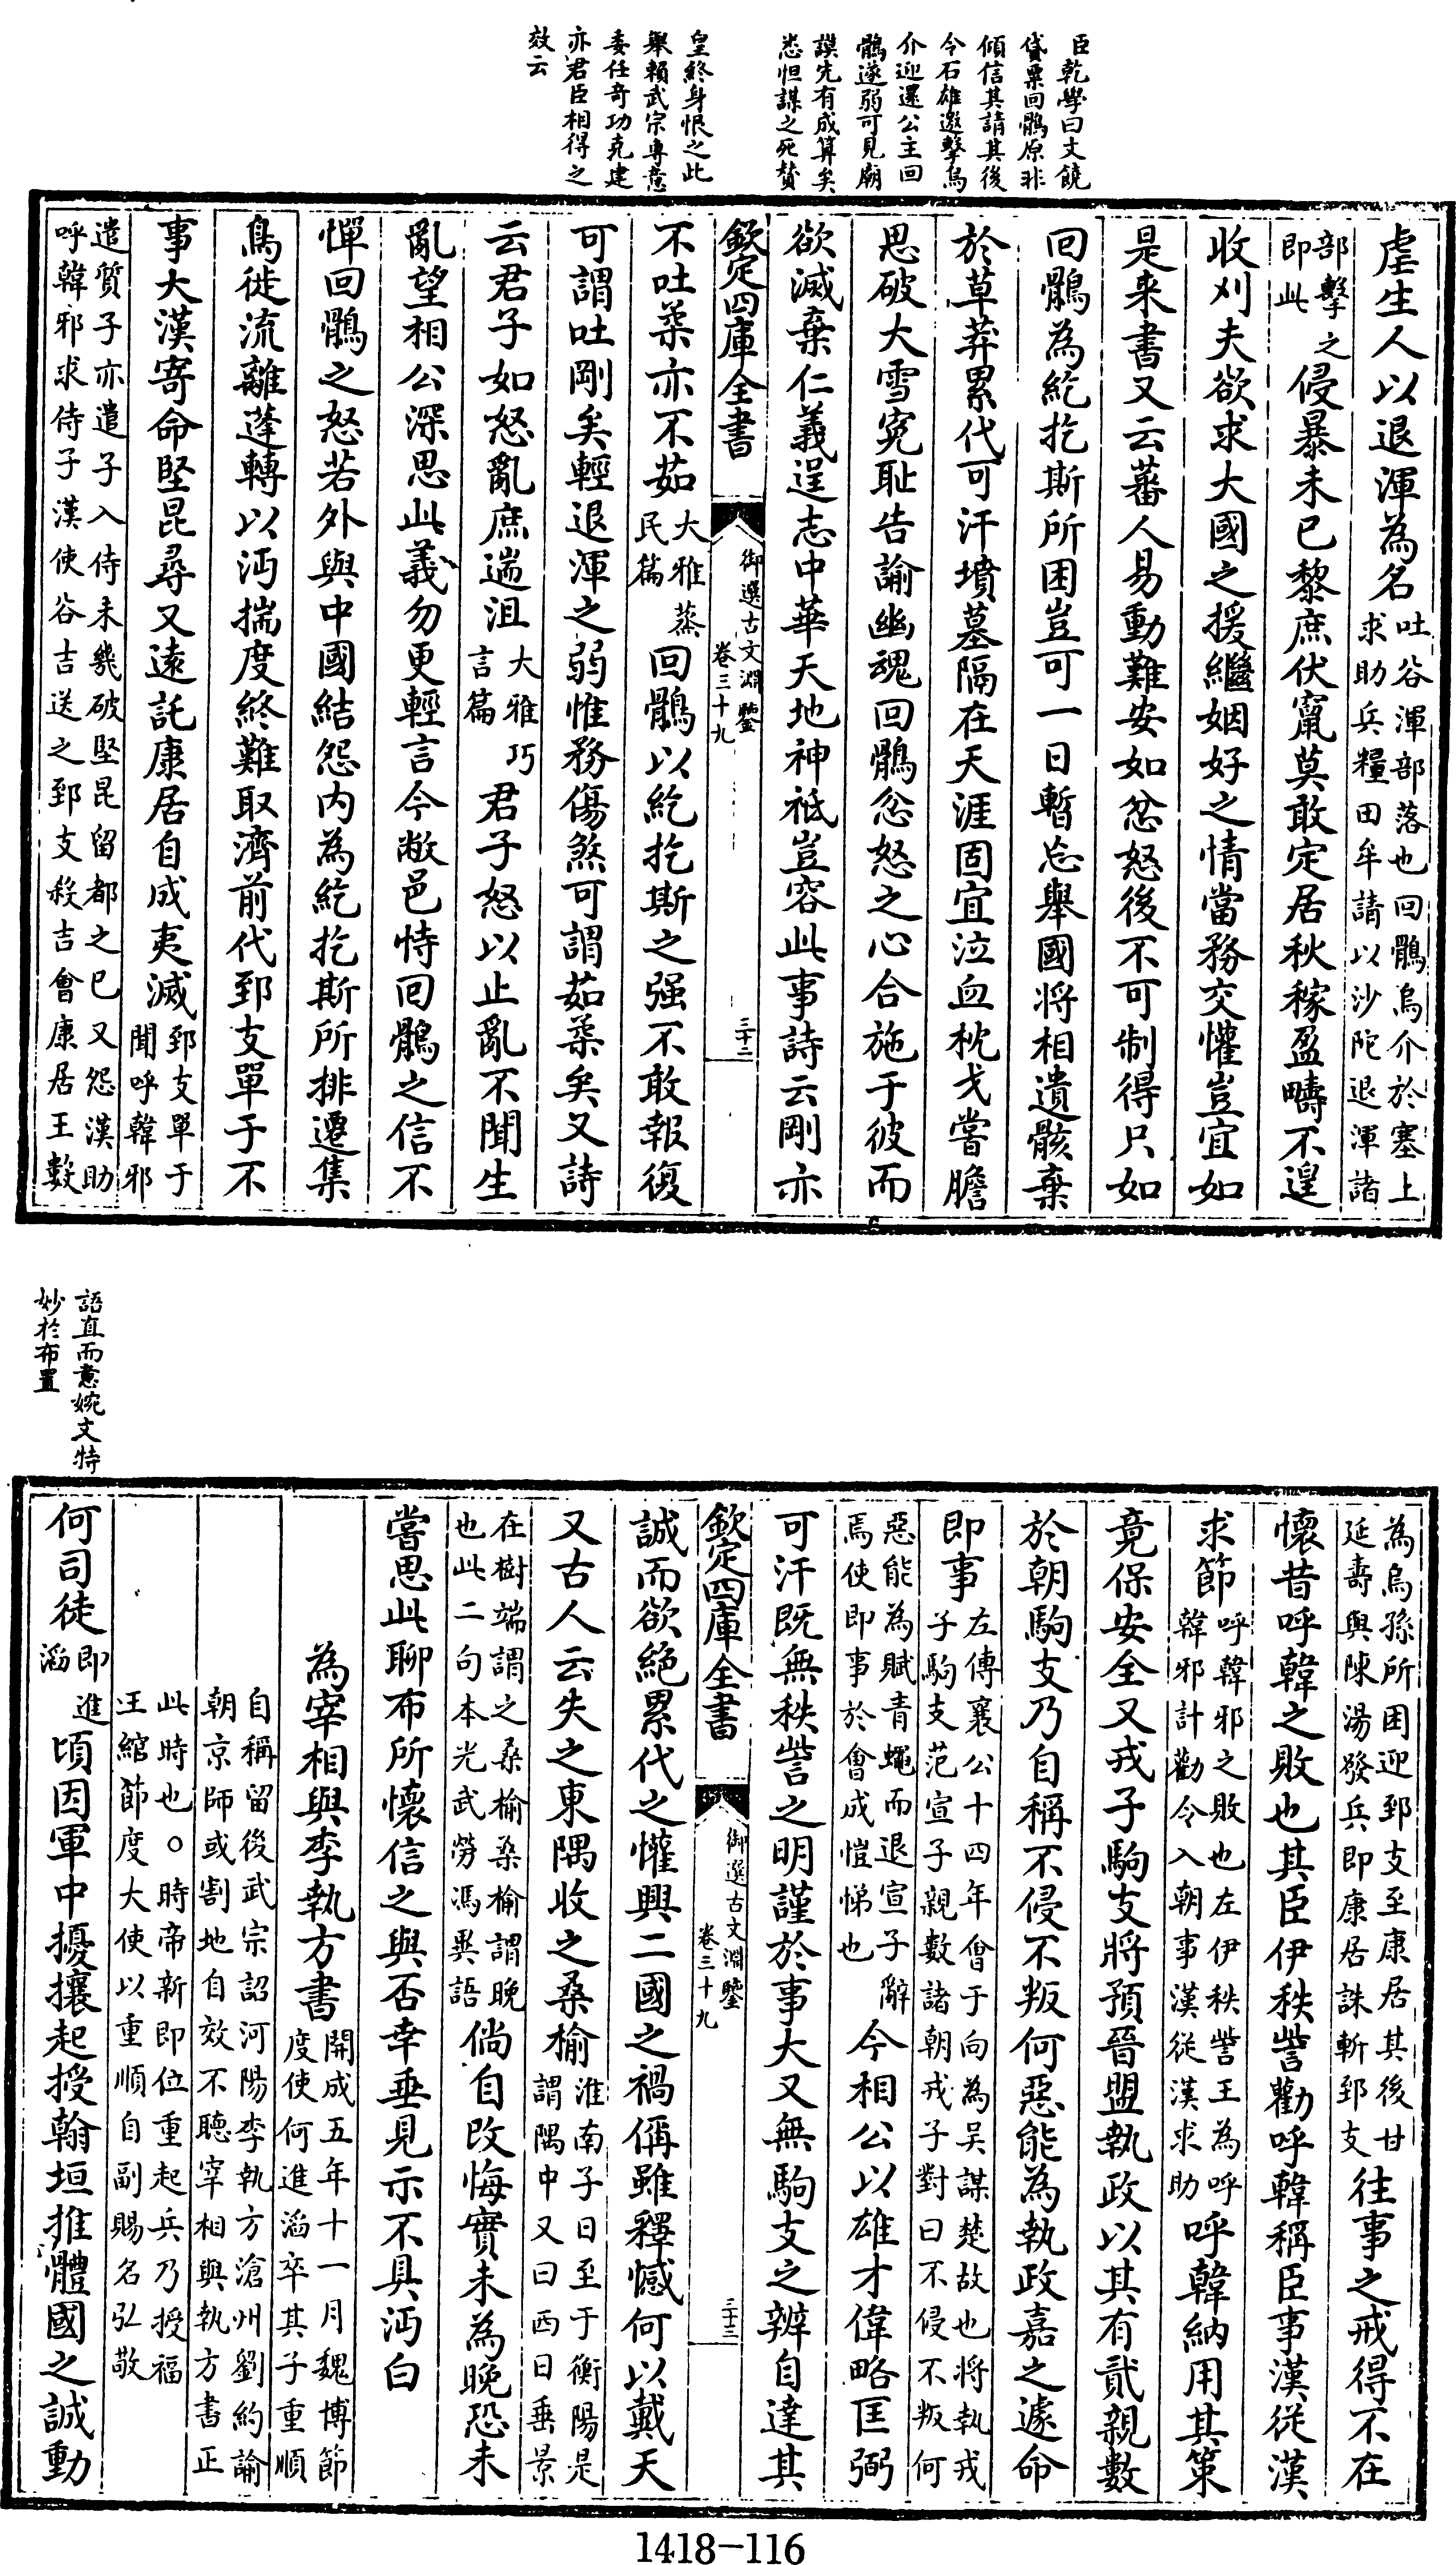 臣乾學曰文饒
貸粟回鶻原非
傾信其請其後
令石雄邀擊烏
介迎還公主回
鶻遂弱可見廟
謨先有成算矣
悉怛謀之死贊
皇終身恨之此
舉賴武宗專意
委任奇功克建
亦君臣相得之
效云
虐生人以退渾為名吐谷渾部落也回鶻烏介於塞上求助兵糧田牟請以沙陀退渾諸
部擊之即此侵暴未已黎庶伏竄莫敢定居秋稼盈疇不遑
收刈夫欲求大國之援繼姻好之情當務交懽豈宜如
是来書又云蕃人易動難安如忿怒後不可制得只如
回鶻為紇扢斯所困豈可一日暫忘舉國將相遺骸棄
於草莽累代可汗墳墓隔在天涯固宜泣血枕戈嘗膽
思破大雪寃耻告諭幽魂回鶻忿怒之心合施于彼而
欲滅棄仁義逞志中華天地神祇豈容此事詩云剛亦
欽定四庫全書
御選古文淵鑒
卷三十九
三十二
不吐柔亦不茹大雅蒸民篇回鶻以紇扢斯之强不敢報復
可謂吐剛矣輕退渾之弱惟務傷煞可謂茹柔矣又詩
云君子如怒亂庶遄沮大雅巧言篇君子怒以止亂不聞生
亂望相公深思此義勿更輕言今敝邑恃回鶻之信不
憚回鶻之怒若外與中國結怨内為紇扢斯所排遷集
鳥徙流離蓬轉以沔揣度終難取濟前代郅支單于不
事大漢寄命堅昆尋又逺託康居自成夷滅郅支單于聞呼韓邪
遣質子亦遣子入侍未幾破堅昆留都之已又怨漢助
呼韓邪求侍子漢使谷吉送之郅支殺吉會康居王數
語直而意婉文特
妙於布置
為烏孫所困迎郅支至康居其後甘
延壽與陳湯發兵即康居誅斬郅支往事之戒得不在
懷昔呼韓之敗也其臣伊秩訾勸呼韓稱臣事漢従漢
求節呼韓邪之敗也左伊秩訾王為呼韓邪計勸令入朝事漢従漢求助呼韓納用其策
竟保安全又戎子駒支將預晉盟執政以其有貳親數
於朝駒支乃自稱不侵不叛何惡能為執政嘉之遽命
即事左傳襄公十四年會于向為吴謀楚故也將執戎子駒支范宣子親數諸朝戎子對曰不侵不叛何
惡能為賦青蠅而退宣子辭
焉使即事於會成愷悌也今相公以雄才偉略匡弼
可汗既無秩訾之明謹於事大又無駒支之辨自達其
欽定四庫全書
御選古文淵鑒
卷三十九
三十三
誠而欲絶累代之懽興二國之禍偁雖釋憾何以戴天
又古人云失之東隅收之桑榆淮南子日至于衡陽是謂隅中又曰西日垂景
在樹端謂之桑榆桑榆謂晚
也此二句本光武勞馮異語倘自改悔實未為晚恐未
嘗思此聊布所懷信之與否幸垂見示不具沔白
為宰相與李執方書開成五年十一月魏博節度使何進滔卒其子重順
自稱留後武宗詔河陽李執方滄州劉約諭
朝京師或割地自效不聽宰相與執方書正
此時也○時帝新即位重起兵乃授福
王綰節度大使以重順自副賜名弘敬
何司徒即進滔頃因軍中擾攘起授翰垣推體國之誠動
1418-116